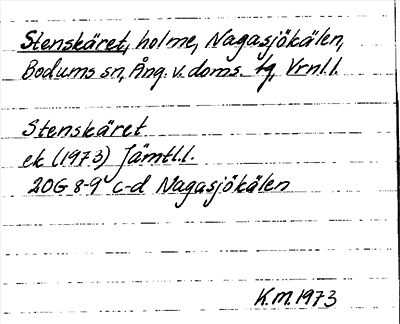 Stenskäret, holme, Nagasjökälen,
Bodums sn, Ång. v. doms. tg, Vrnl.l.
Stenskäret
ek (1973) Jämtl.l.
20G 8-9 c-d Nagasjökälen
K.M. 1973